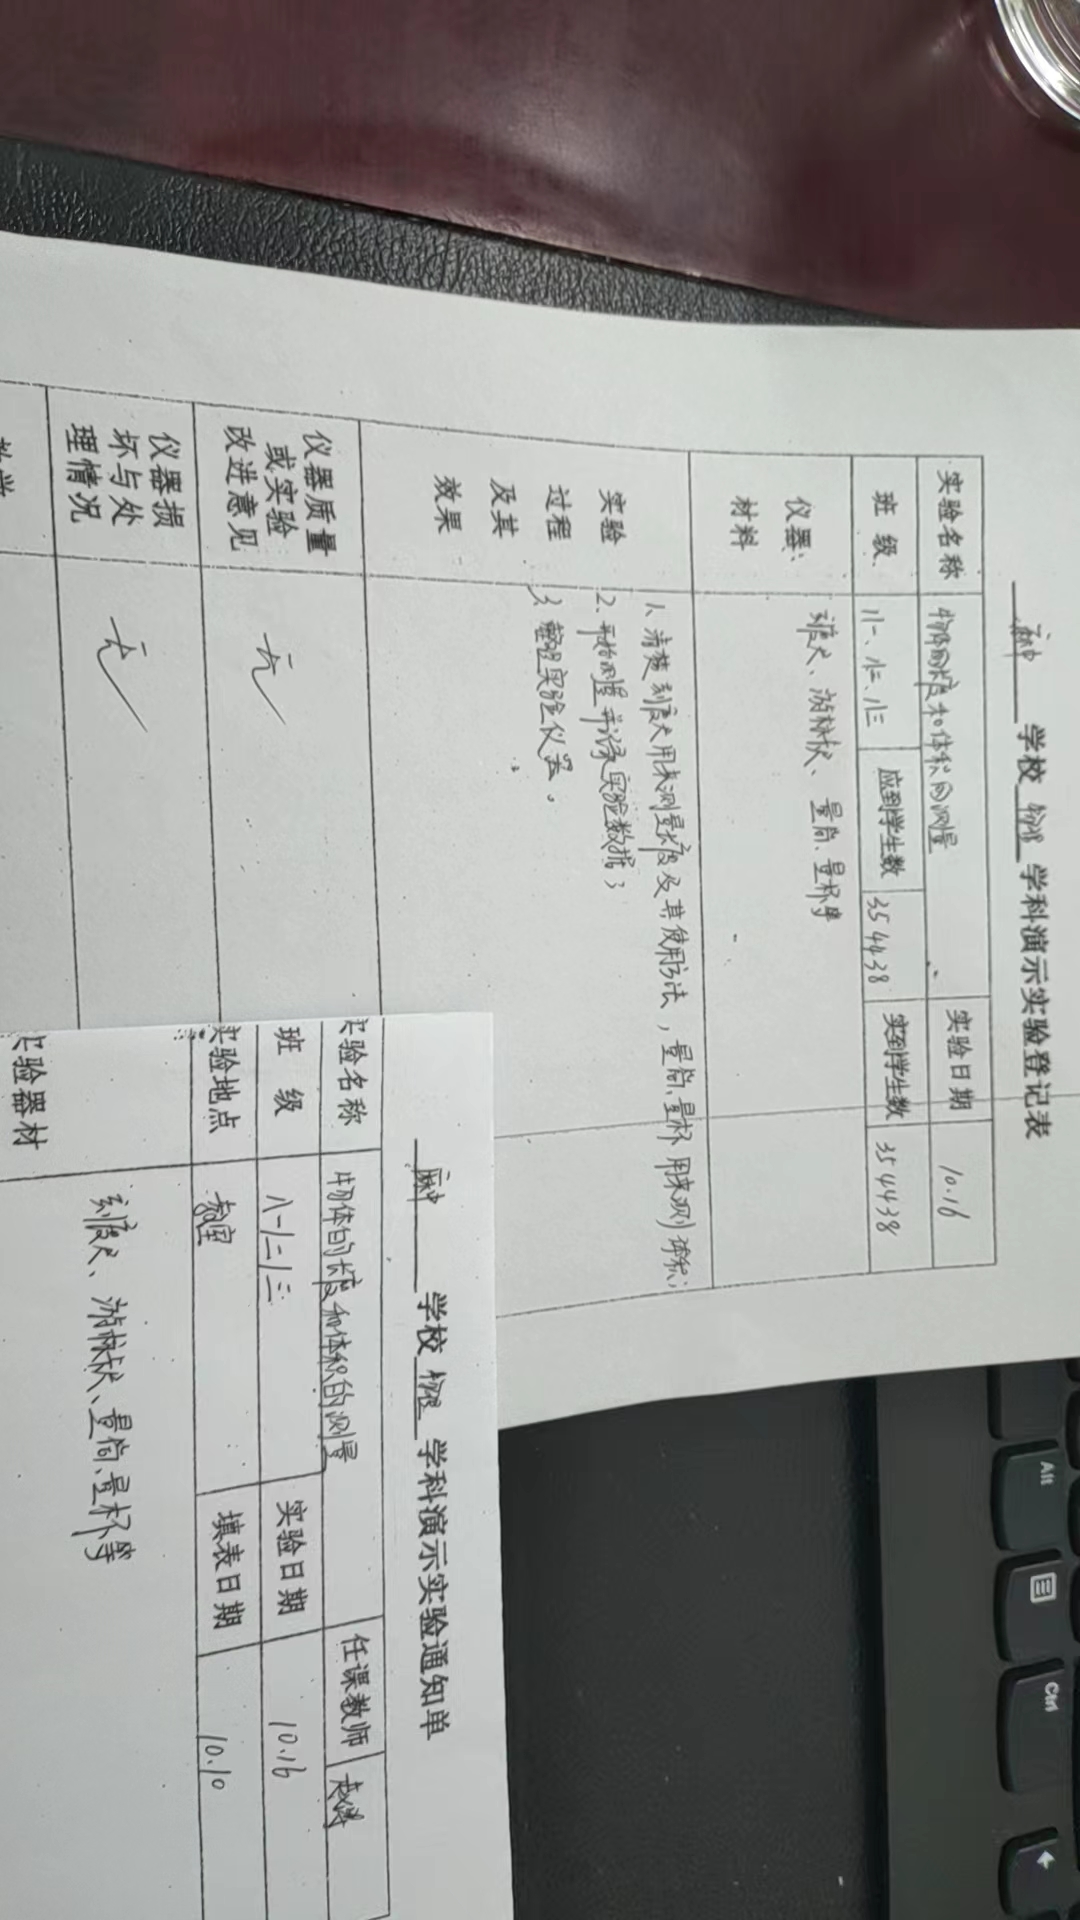 学校 物理 学科演示实验登记表
实验名称 物体的长度和体积的测量 实验日期 10.16
班 级 八一、八二、八三 应到学生数 35 44 38 实到学生数 35 44 38
仪器、
材料
刻度尺、游标卡尺、量筒、量杯等
实验
过程
及其
效果
1、清楚刻度尺用来测量长度及其使用方法,量筒、量杯用来测体积;
2、开始测量并记录实验数据;
3、整理实验仪器。
仪器质量
或实验
改进意见
无
仪器损
坏与处
理情况
无
学校 物理 学科演示实验通知单
实验名称 物体的长度和体积的测量 任课教师
班 级 八一 八二 八三 实验日期 10.16
实验地点 教室 填表日期 10.10
实验器材
刻度尺、游标卡尺、量筒、量杯等
Alt
Ctrl